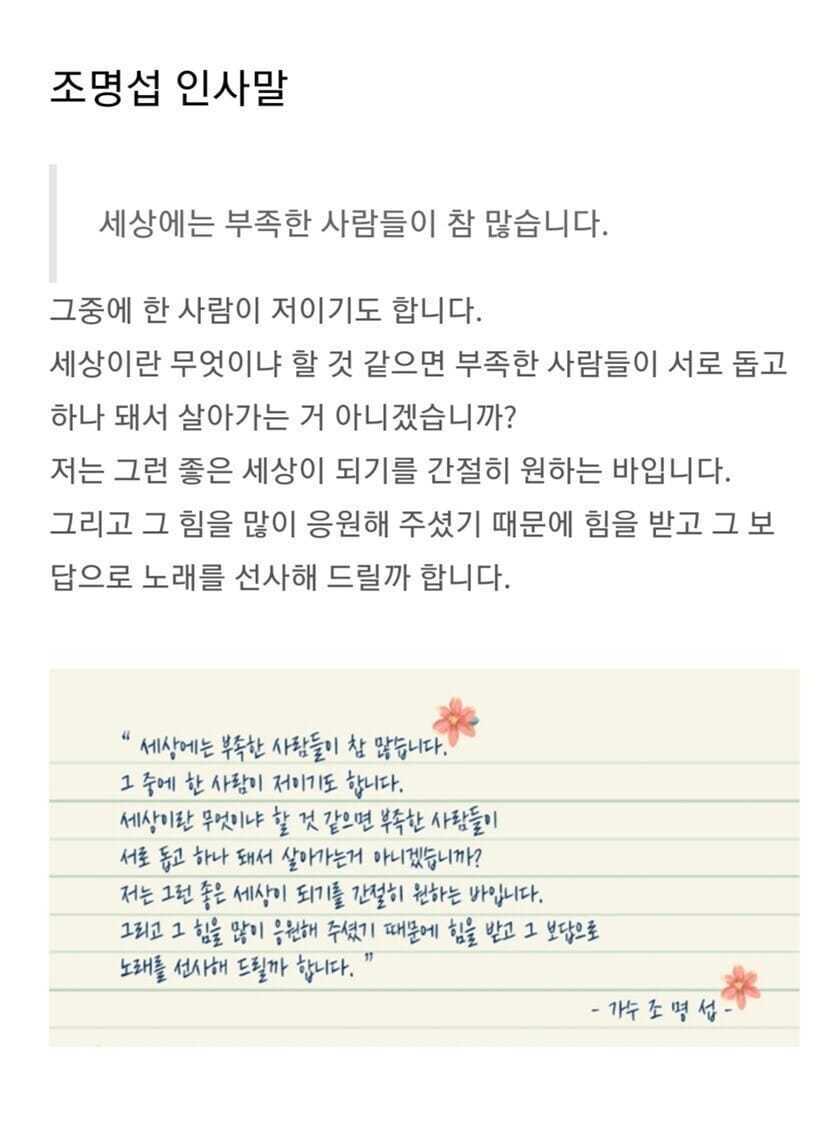 조명섭 인사말
세상에는 부족한 사람들이 참 많습니다.
그중에 한 사람이 저이기도 합니다.
세상이란 무엇이냐 할 것 같으면 부족한 사람들이 서로 돕고
하나 돼서 살아가는 거 아니겠습니까?
저는 그런 좋은 세상이 되기를 간절히 원하는 바입니다.
그리고 그 힘을 많이 응원해 주셨기 때문에 힘을 받고 그 보
답으로 노래를 선사해 드릴까 합니다.
“ 세상에는 부족한 사람들이 참 많습니다.
그 중에 한 사람이 저이기도 합니다.
세상이란 무엇이냐 할 것 같으면 부족한 사람들이
서로 돕고 하나 돼서 살아가는거 아니겠습니까?
저는 그런 좋은 세상이 되기를 간절히 원하는 바입니다.
그리고 그 힘을 많이 응원해 주셨기 때문에 힘을 받고 그 보답으로
노래를 선사해 드릴까 합니다. ”
- 가수 조 명 섭 -